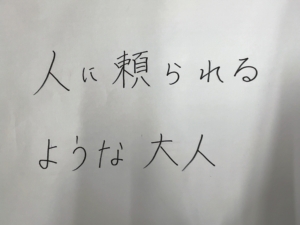 人に頼られる
ような大人